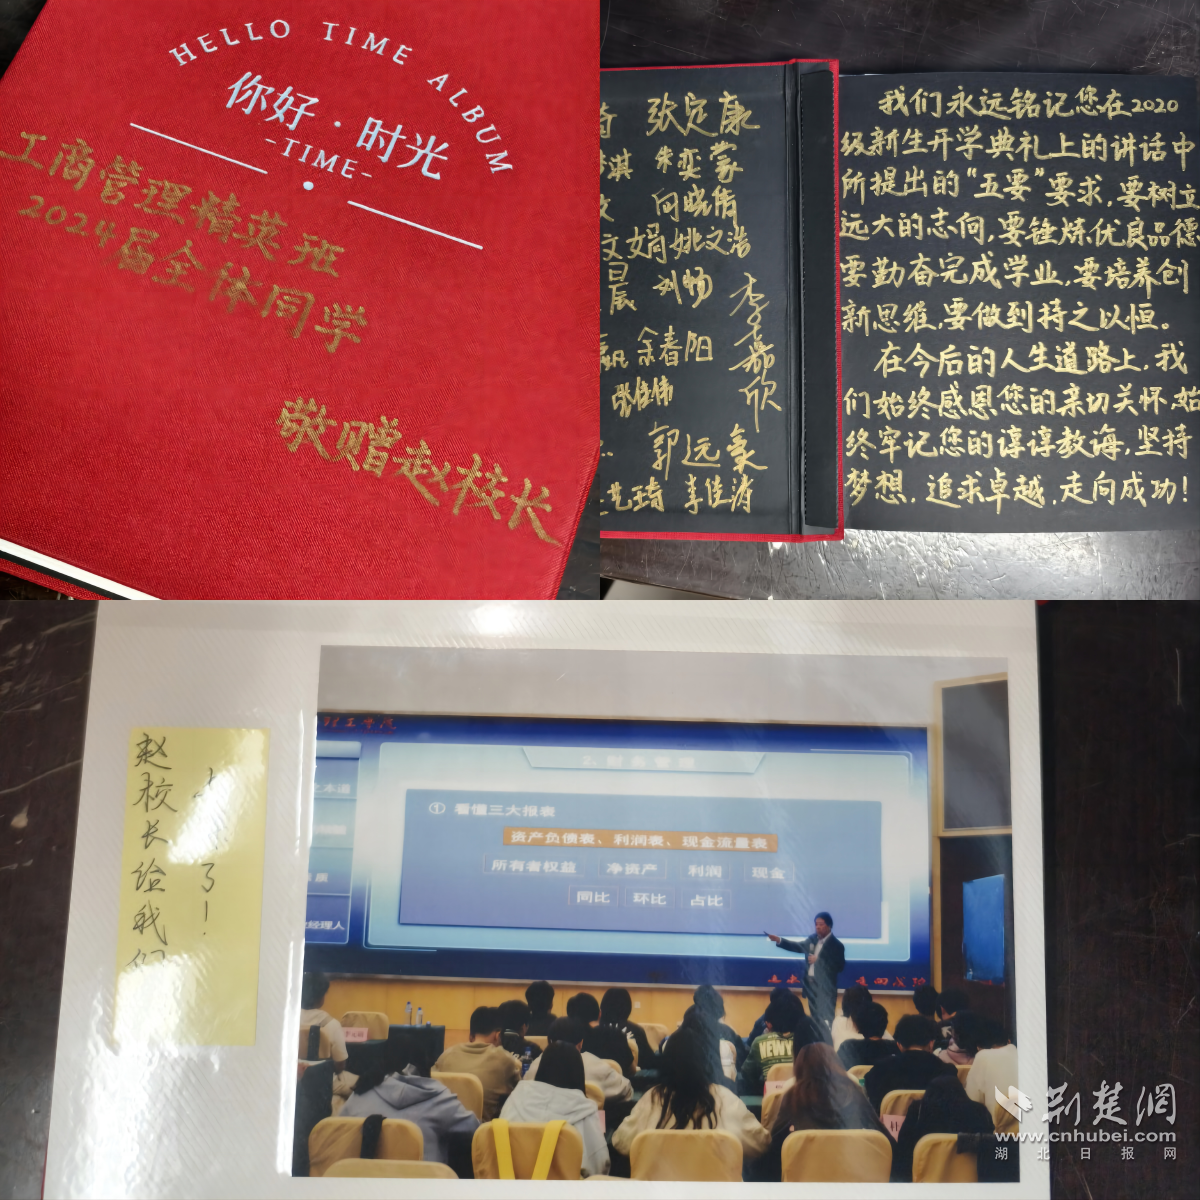 HELLO TIME ALBUM
你好·时光
-TIME-
工商管理精英班
2024届全体同学
敬赠赵校长
张定康
淇 朱奕蒙
向晓倩
文娟 姚文浩
刘畅
李嘉欣
余春阳
郭远豪
艺琦 李佳涛
我们永远铭记您在2020
级新生开学典礼上的讲话中
所提出的“五要”要求,要树立
远大的志向,要锤炼优良品德
要勤奋完成学业,要培养创
新思维,要做到持之以恒。
在今后的人生道路上,我
们始终感恩您的亲切关怀,始
终牢记您的谆谆教诲,坚持
梦想,追求卓越,走向成功!
赵校长给我们
了!
2、财务管理
① 看懂三大报表
资产负债表、利润表、现金流量表
所有者权益 净资产 利润 现金
同比 环比 占比
经理人
荆楚网
www.cnhubei.com
湖北日报网